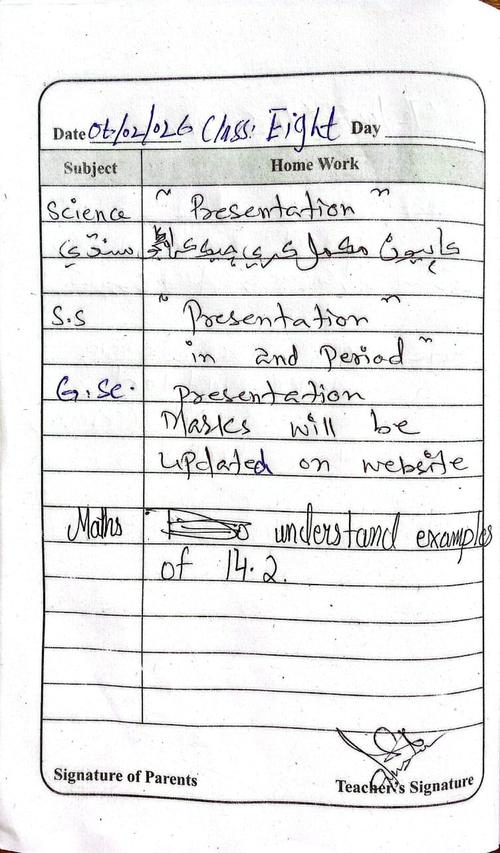 Date 06/02/026 Class: Eight Day
Subject Home Work
Science " Presentation "
سنڌي ڪاپيون مڪمل ڪري چيڪ
S.S " Presentation "
in 2nd Period "
G.Sc. Presentation
Marks will be
updated on website
Maths understand examples
of 14.2.
Signature of Parents Teacher's Signature